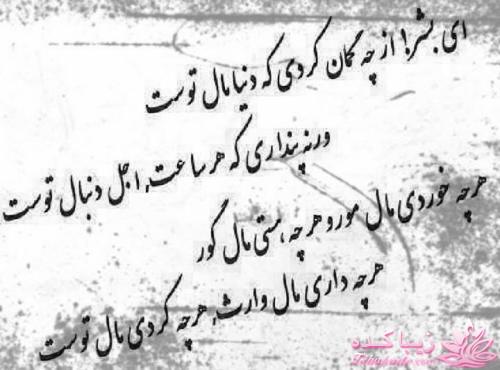 ای بشر! از چه گمان کردی که دنیا مال توست
ورنه پنداری که هر ساعت، اجل دنبال توست
هرچه خوردی مال مور و هرچه هستی مال گور
هرچه داری مال وارث، هرچه کردی مال توست
زیباکده